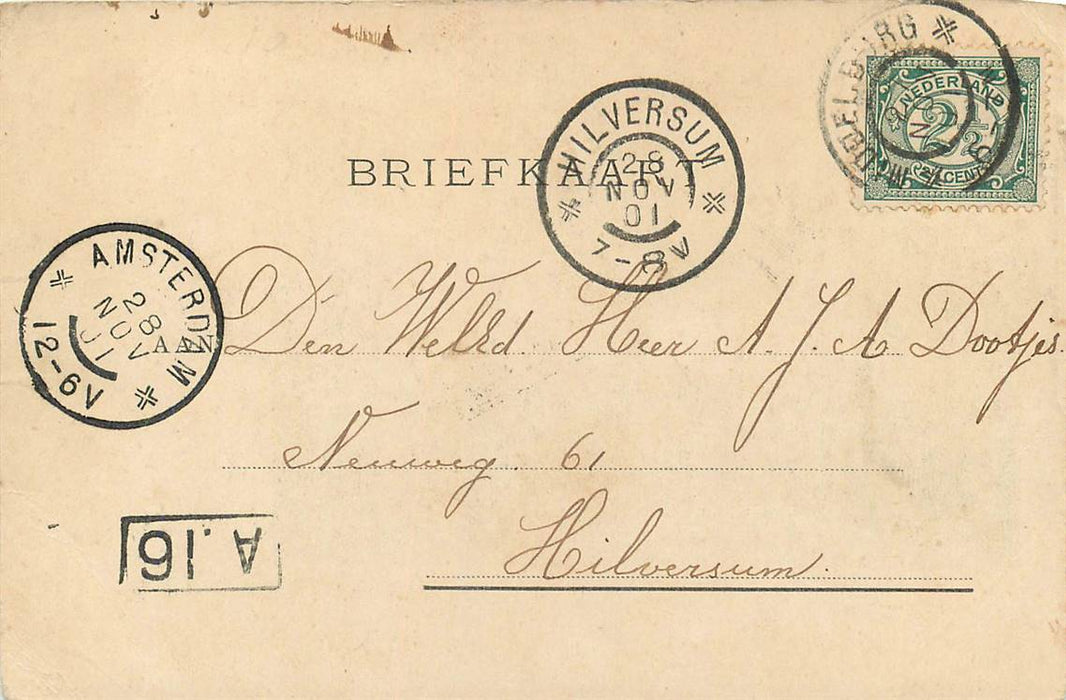 MIDDELBURG
NOV
NEDERLAND
2½
CENT
HILVERSUM
28
NOV
01
7-8V
BRIEFKAART
AMSTERDAM
28
NOV
01
12-6V
AAN Den WelEd. Heer A. J. A Dootjes.
Neuweg. 61
Hilversum.
A.16